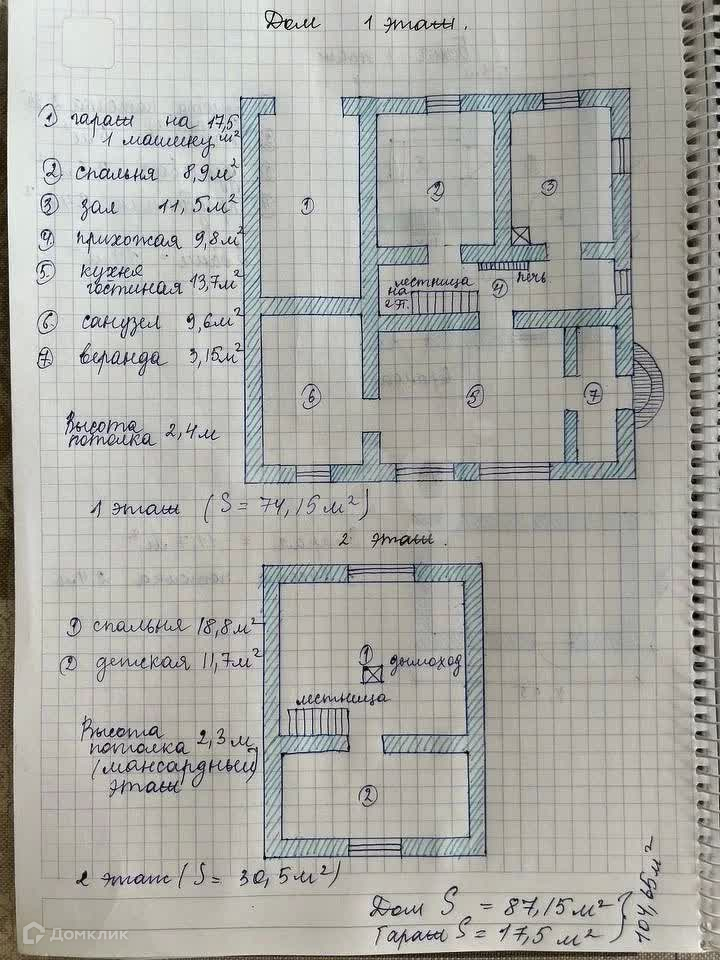 Дом 1 этаж.
① гараж на 17,5
1 машину м²
② спальня 8,9м²
③ зал 11,5м²
④ прихожая 9,8м²
⑤ кухня
гостиная 13,7м²
⑥ санузел 9,6м²
⑦ веранда 3,15м²
Высота
потолка 2,4м
1
2
3
лестница
на
2 п.
4
печь
5
6
7
1 этаж (S = 74,15м²)
2 этаж.
① спальня 18,8м²
② детская 11,7м²
Высота
потолка 2,3м
(мансардный)
этаж
1
дымоход
лестница
2
2 этаж (S = 30,5м²)
Дом S = 87,15м²
Гараж S = 17,5м²
104,65м²
Домклик